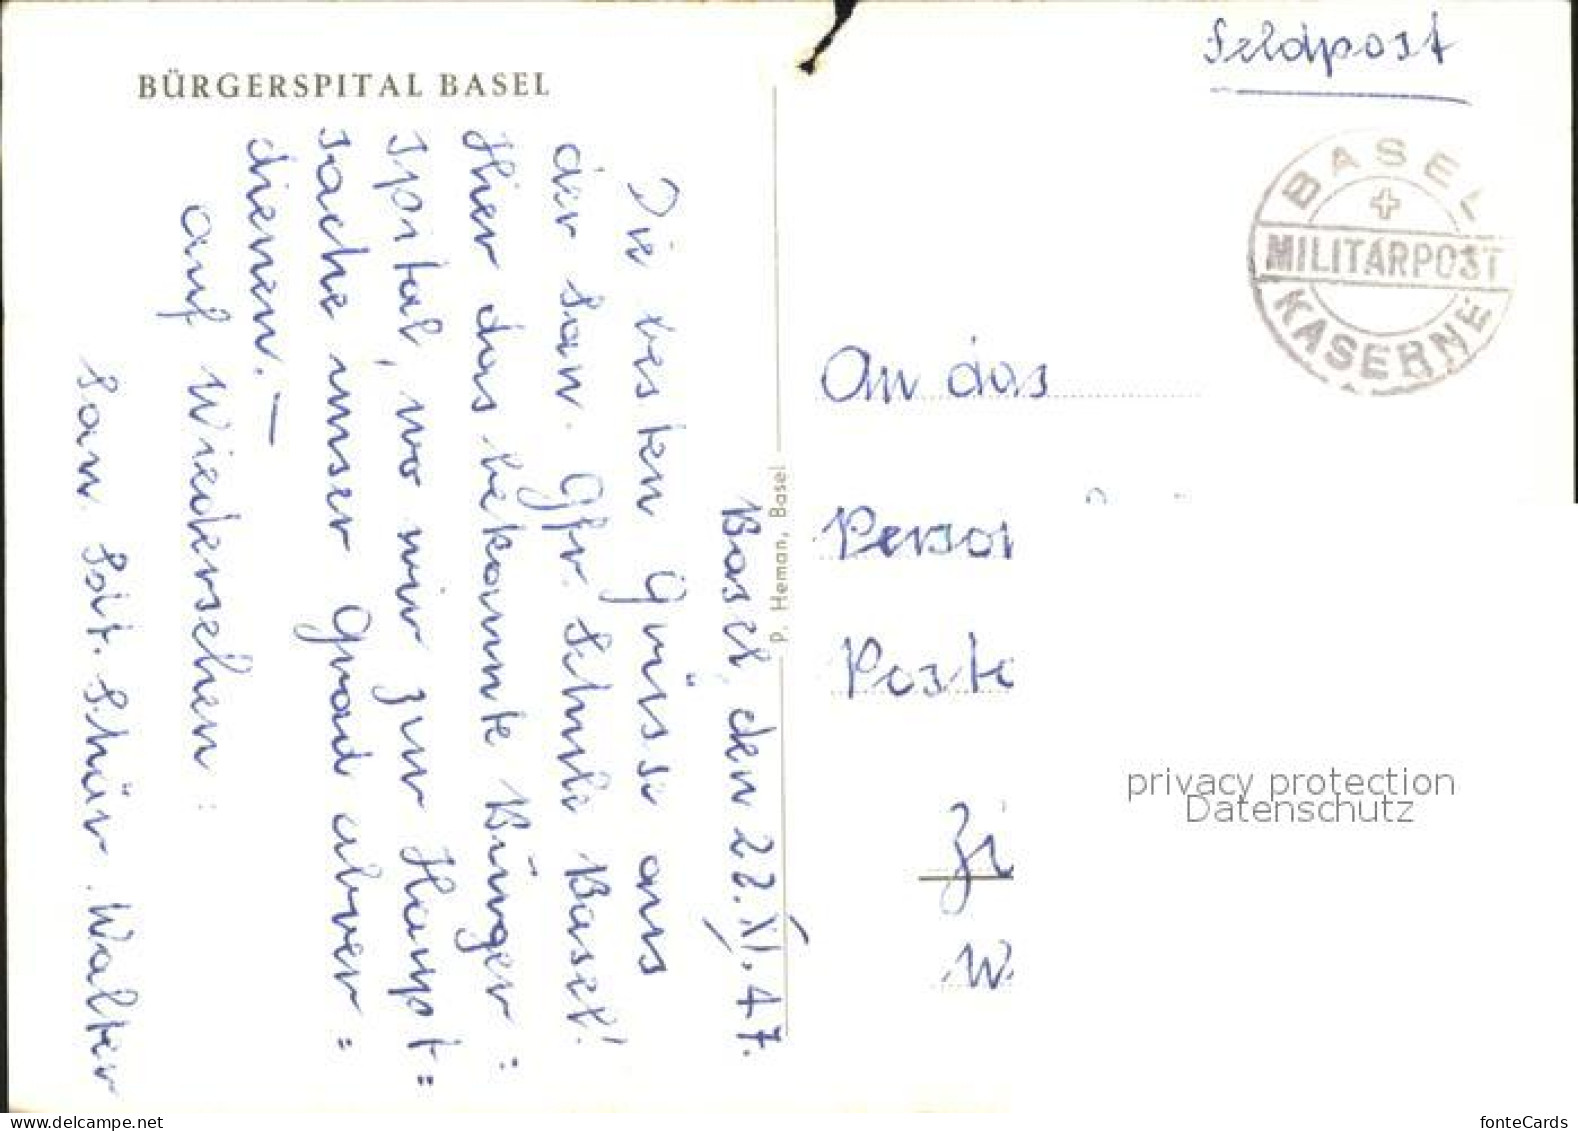 BÜRGERSPITAL BASEL
Basel, den 22. XI. 47.
Die besten Grüsse aus
der San. Gfr. Schule Basel!
Hier das bekannte Bürger=
spital, wo wir zur Haupt=
sache unser Grad abver=
dienen. –
Auf Wiedersehen:
San. Sdt. Schür Walter
P. Heman, Basel
Feldpost
BASEL
MILITÄRPOST
KASERNE
An das
Person
Poste
Zi
W.
privacy protection
Datenschutz
www.delcampe.net
fonteCards